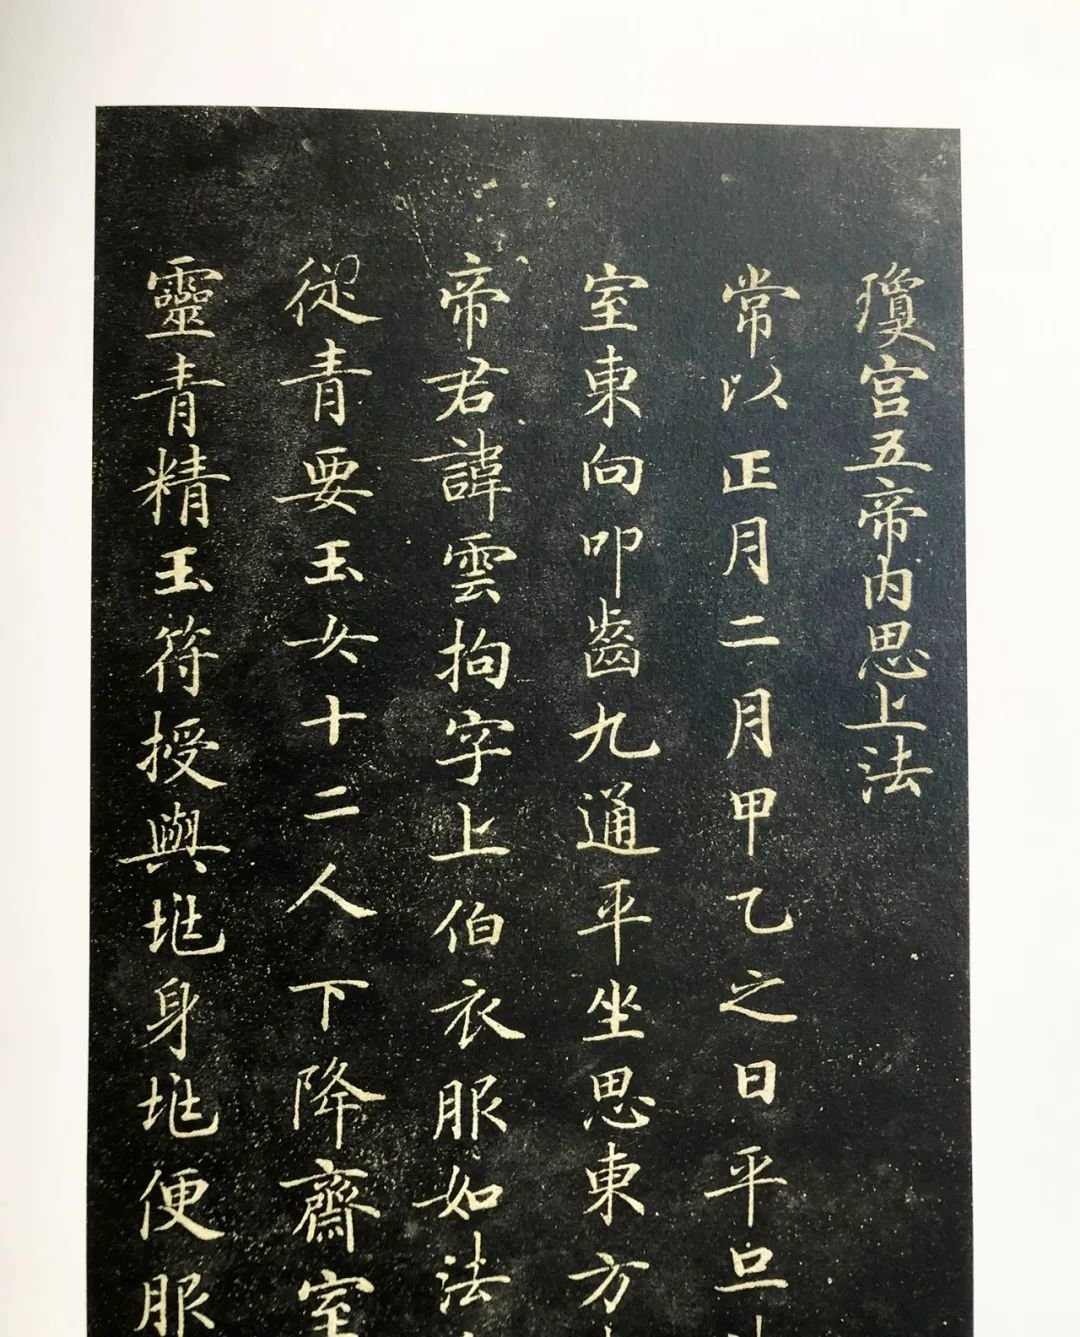 瓊宮五帝内思上法
常以正月二月甲乙之日平旦
室東向叩齒九通平坐思東方
帝君諱雲拘字上伯衣服如法
從青要玉女十二人下降齋室
靈青精玉符授與兆身兆便服